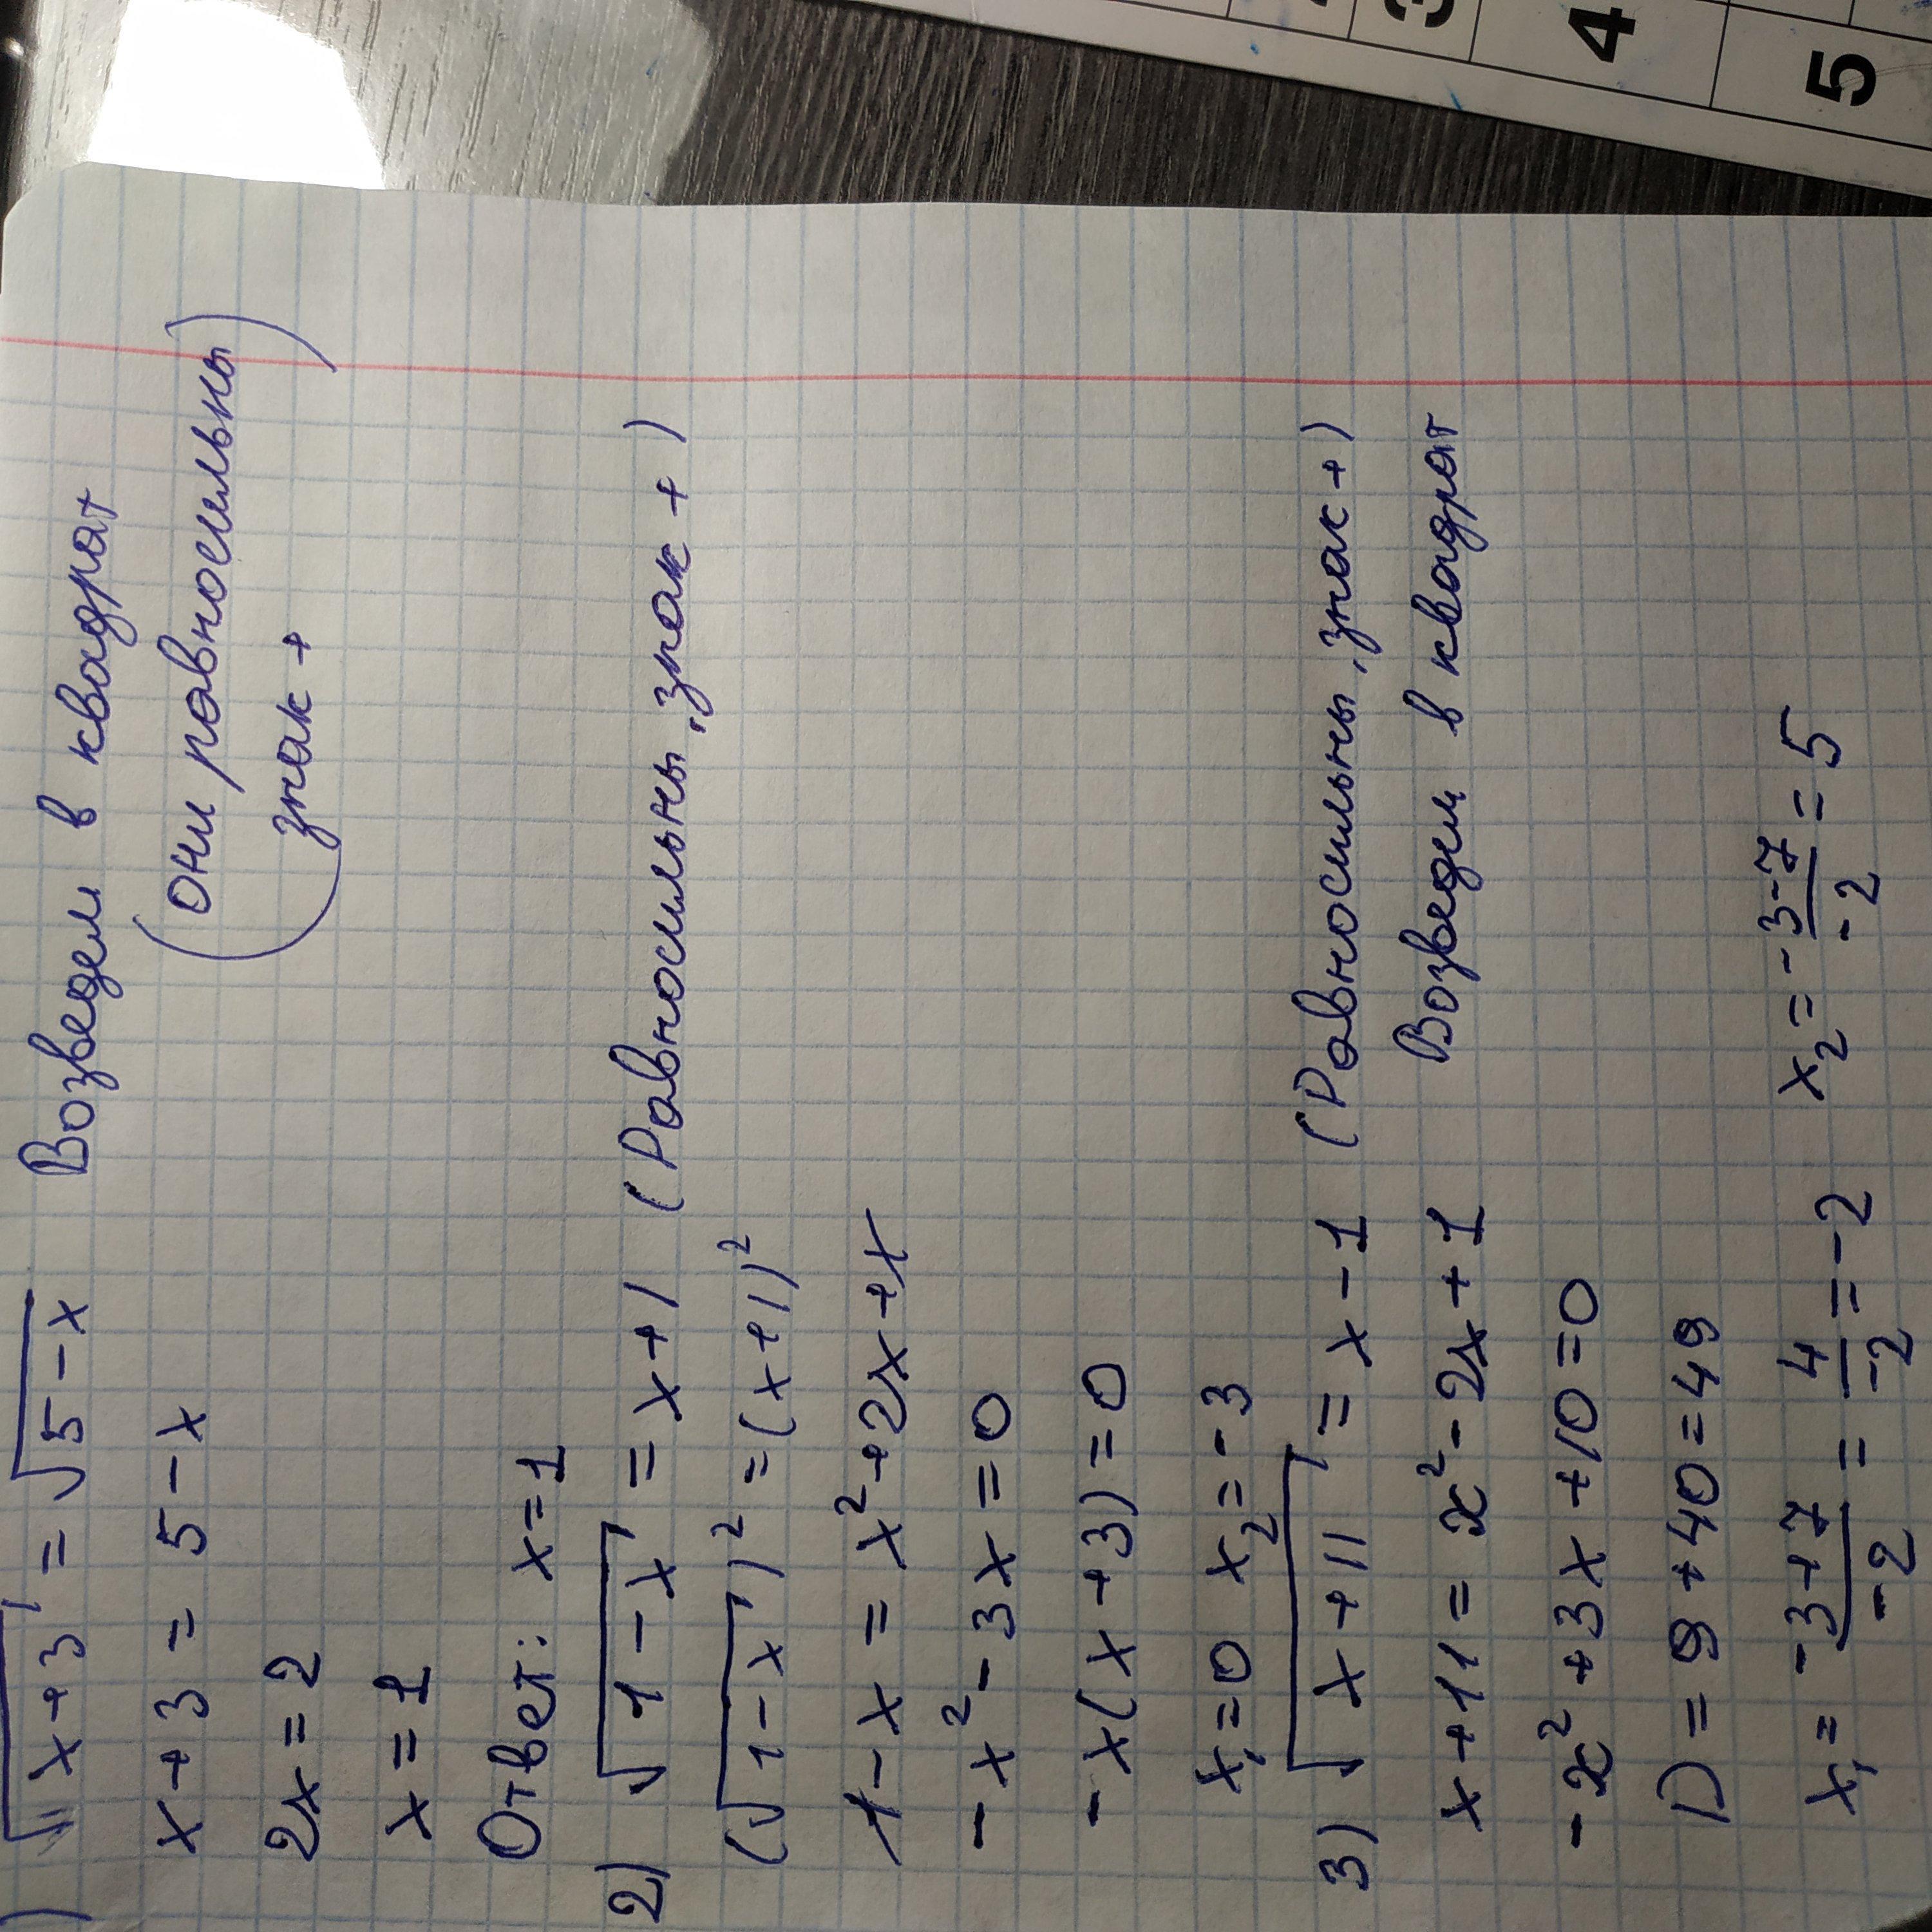 ) √x+3 = √5-x Возведем в квадрат
x+3 = 5-x (они равносильны
2x=2 знак +)
x=1
Ответ: x=1
2) √1-x = x+1 (Равносильны, знак +)
(√1-x)² = (x+1)²
1-x = x²+2x+1
-x²-3x=0
-x(x+3)=0
x₁=0 x₂=-3
3) √x+11 = x-1 (Равносильны, знак +)
x+11 = x²-2x+1 Возведем в квадрат
-x²+3x+10=0
D=9+40=49
x₁= -3+7/-2 = 4/-2 = -2 x₂= -3-7/-2 = 5
3
4
5